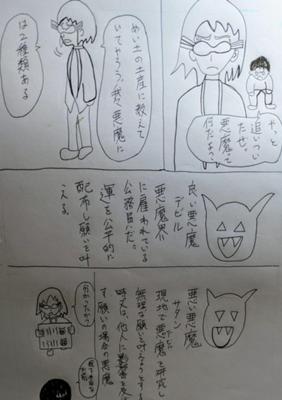 やっと
追いつい
たぜ。
悪魔って
何だよっ
めい土の土産に教えて
いてやろう。我々悪魔に
は2種類ある
良い悪魔
デビル
悪魔界
に雇われている
公務員だ。
運を公平的に
配布し願いを叶
える。
悪い悪魔
サタン
現地で悪魔を研究し
無理な願いを叶えようとする
時又は、他人に影響を及
す願いの場合の悪魔
分かったかっ